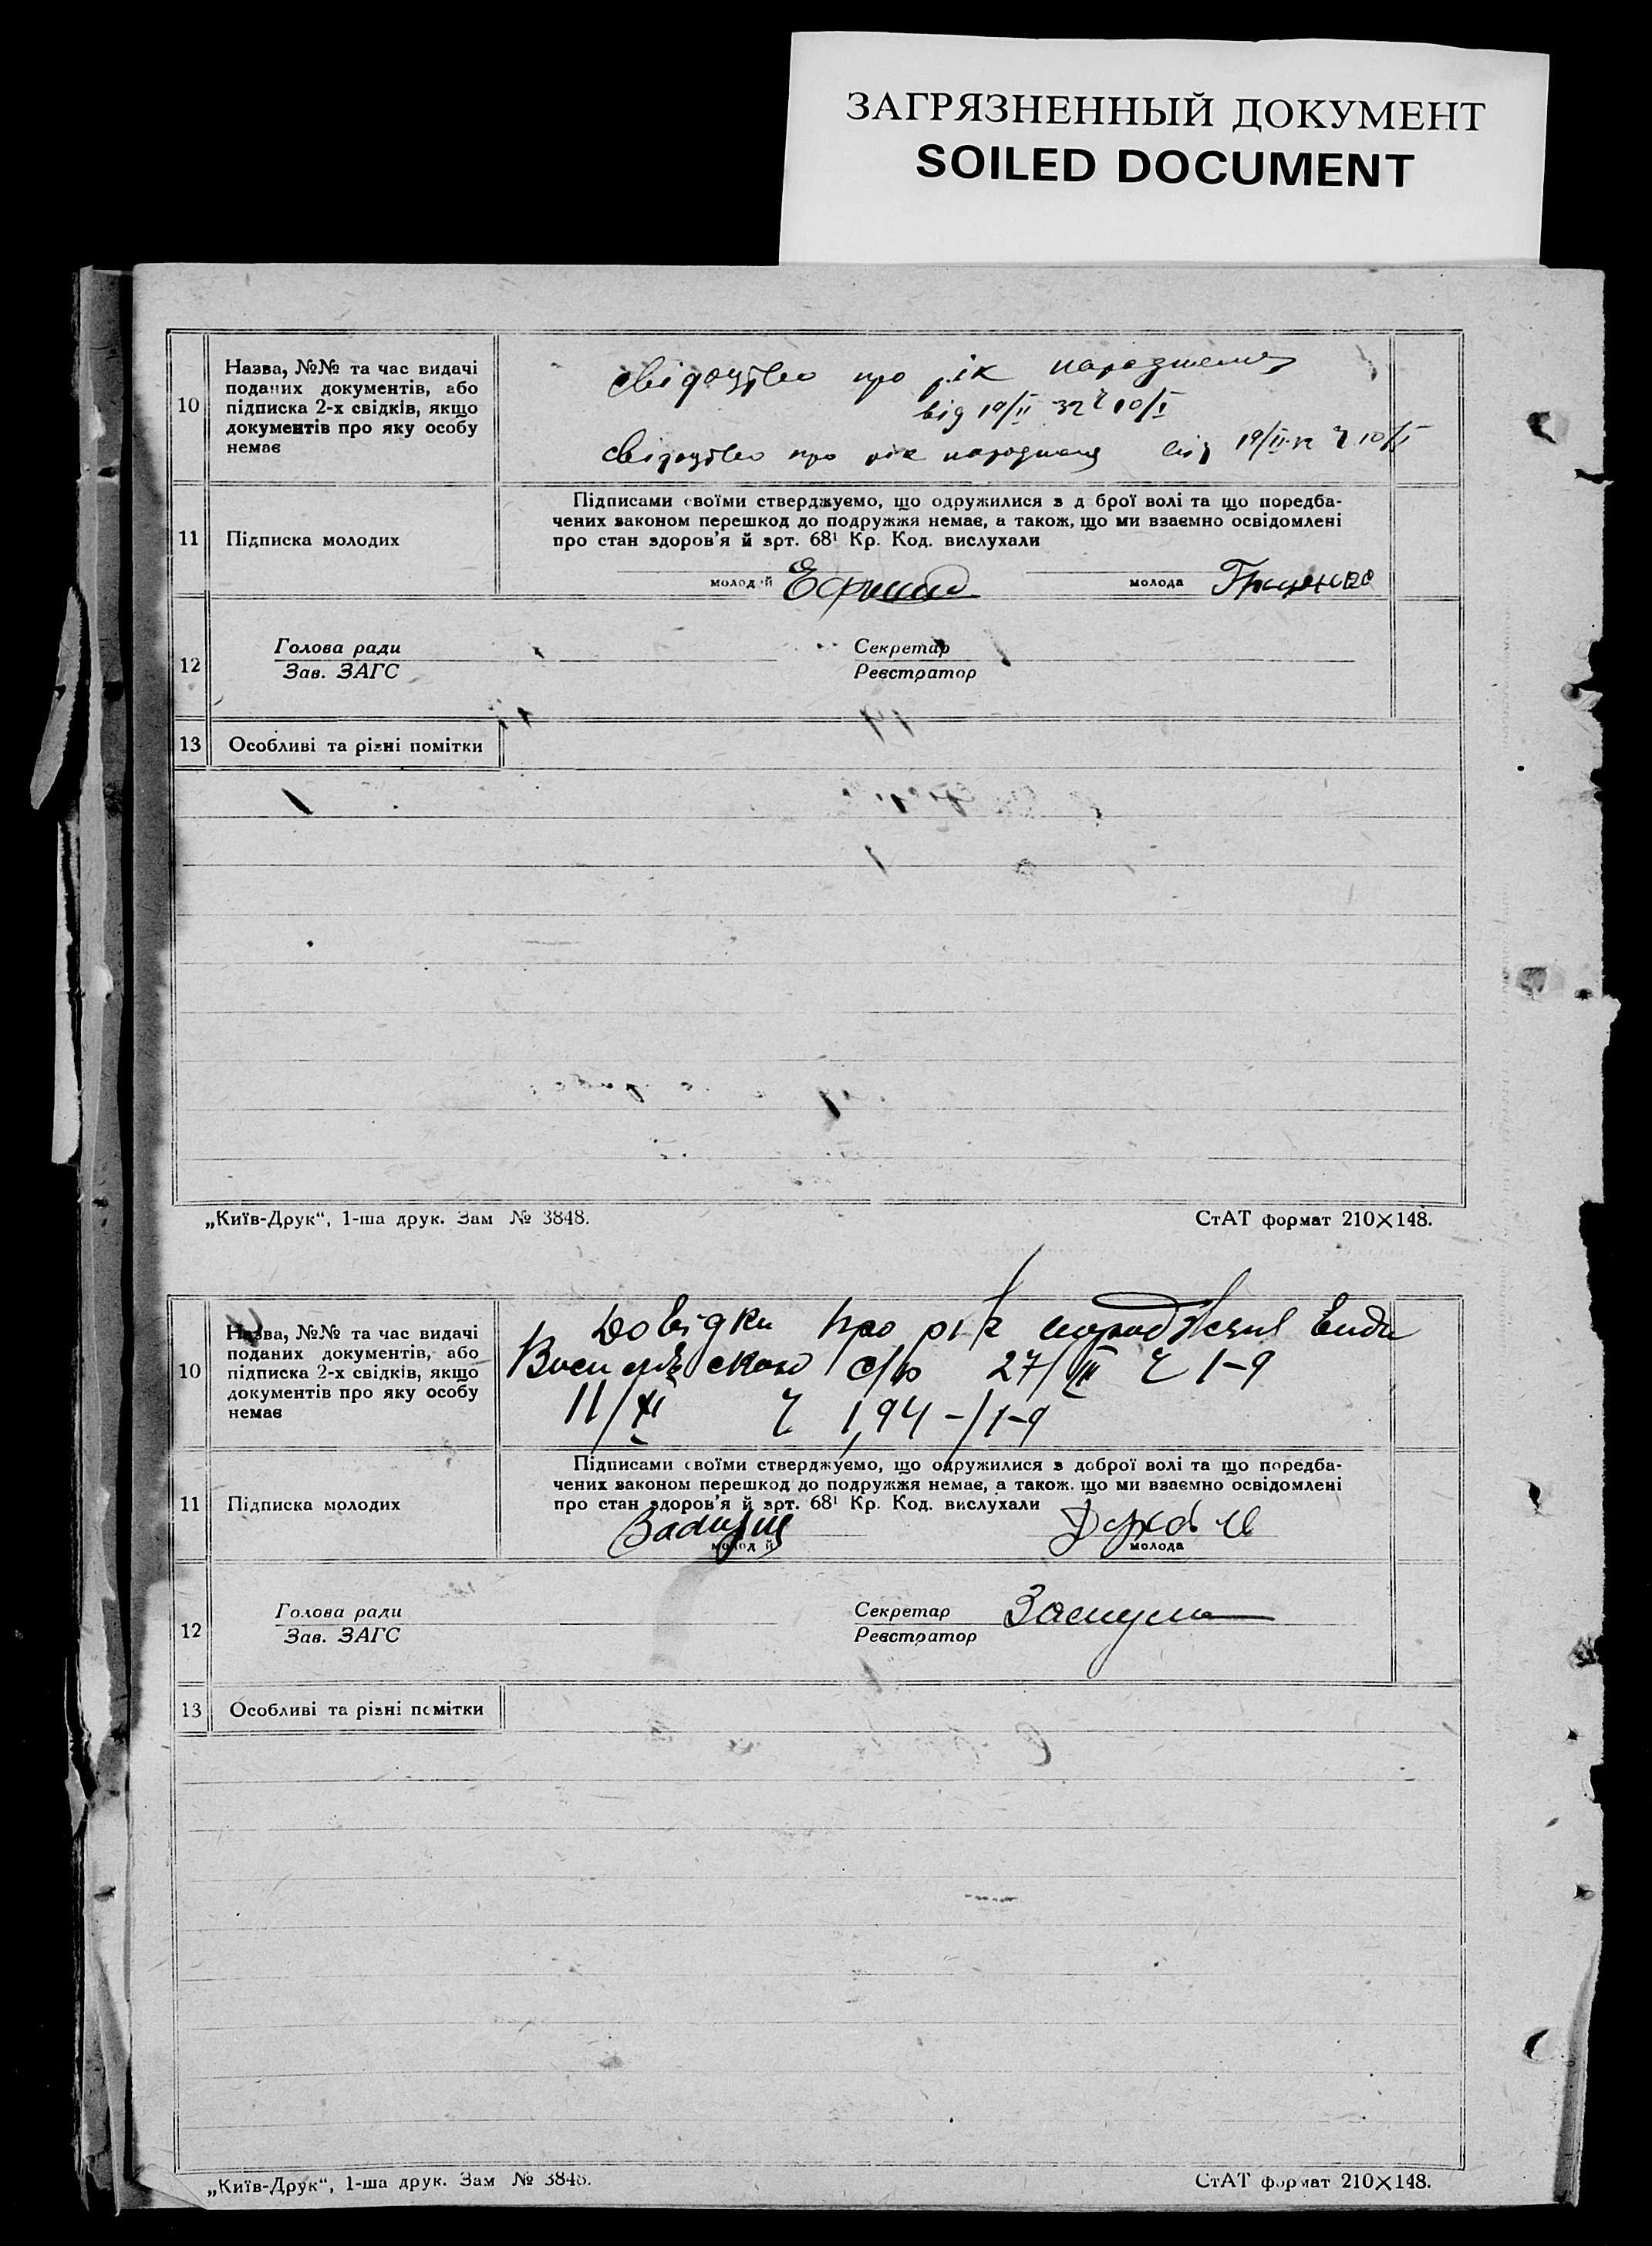 ЗАГРЯЗНЕННЫЙ ДОКУМЕНТ
SOILED DOCUMENT
10
Назва, №№ та час видачі
поданих документів, або
підписка 2-х свідків, якщо
документів про яку особу
немає
свідоцтво про рік народження
від 19/II 32 ч 10/I
свідоцтво про рік народження від 19/II-32 ч 10/I
11
Підписка молодих
Підписами своїми стверджуємо, що одружилися з д брої волі та що поредба-
чених законом перешкод до подружжя немає, а також, що ми взаємно освідомлені
про стан здоров'я й арт. 68¹ Кр. Код. вислухали
молодий
молода Гриценко
12
Голова ради
Зав. ЗАГС
Секретар
Реєстратор
13 Особливі та різні помітки
„Київ-Друк“, 1-ша друк. Зам № 3848.
СтАТ формат 210×148.
10
Назва, №№ та час видачі
поданих документів, або
підписка 2-х свідків, якщо
документів про яку особу
немає
Довідки про рік народження
с/р 27/III ч 1-9
11/XI ч 194-/1-9
11
Підписка молодих
Підписами своїми стверджуємо, що одружилися з доброї волі та що поредба-
чених законом перешкод до подружжя немає, а також. що ми взаємно освідомлені
про стан здоров'я й арт. 68¹ Кр. Код. вислухали
молодий
молода
12
Голова ради
Зав. ЗАГС
Секретар
Реєстратор
13 Особливі та різні помітки
„Київ-Друк“, 1-ша друк. Зам № 3848.
СтАТ формат 210×148.